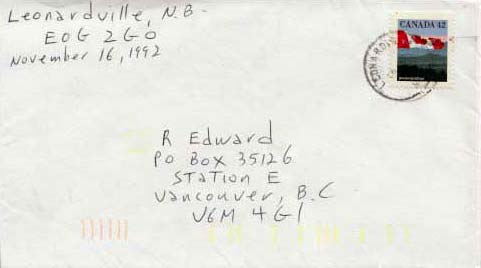 Leonardville, N.B.
E0G 2G0
November 16, 1992
CANADA 42
R Edward
PO Box 35126
Station E
Vancouver, B.C
V6M 4G1